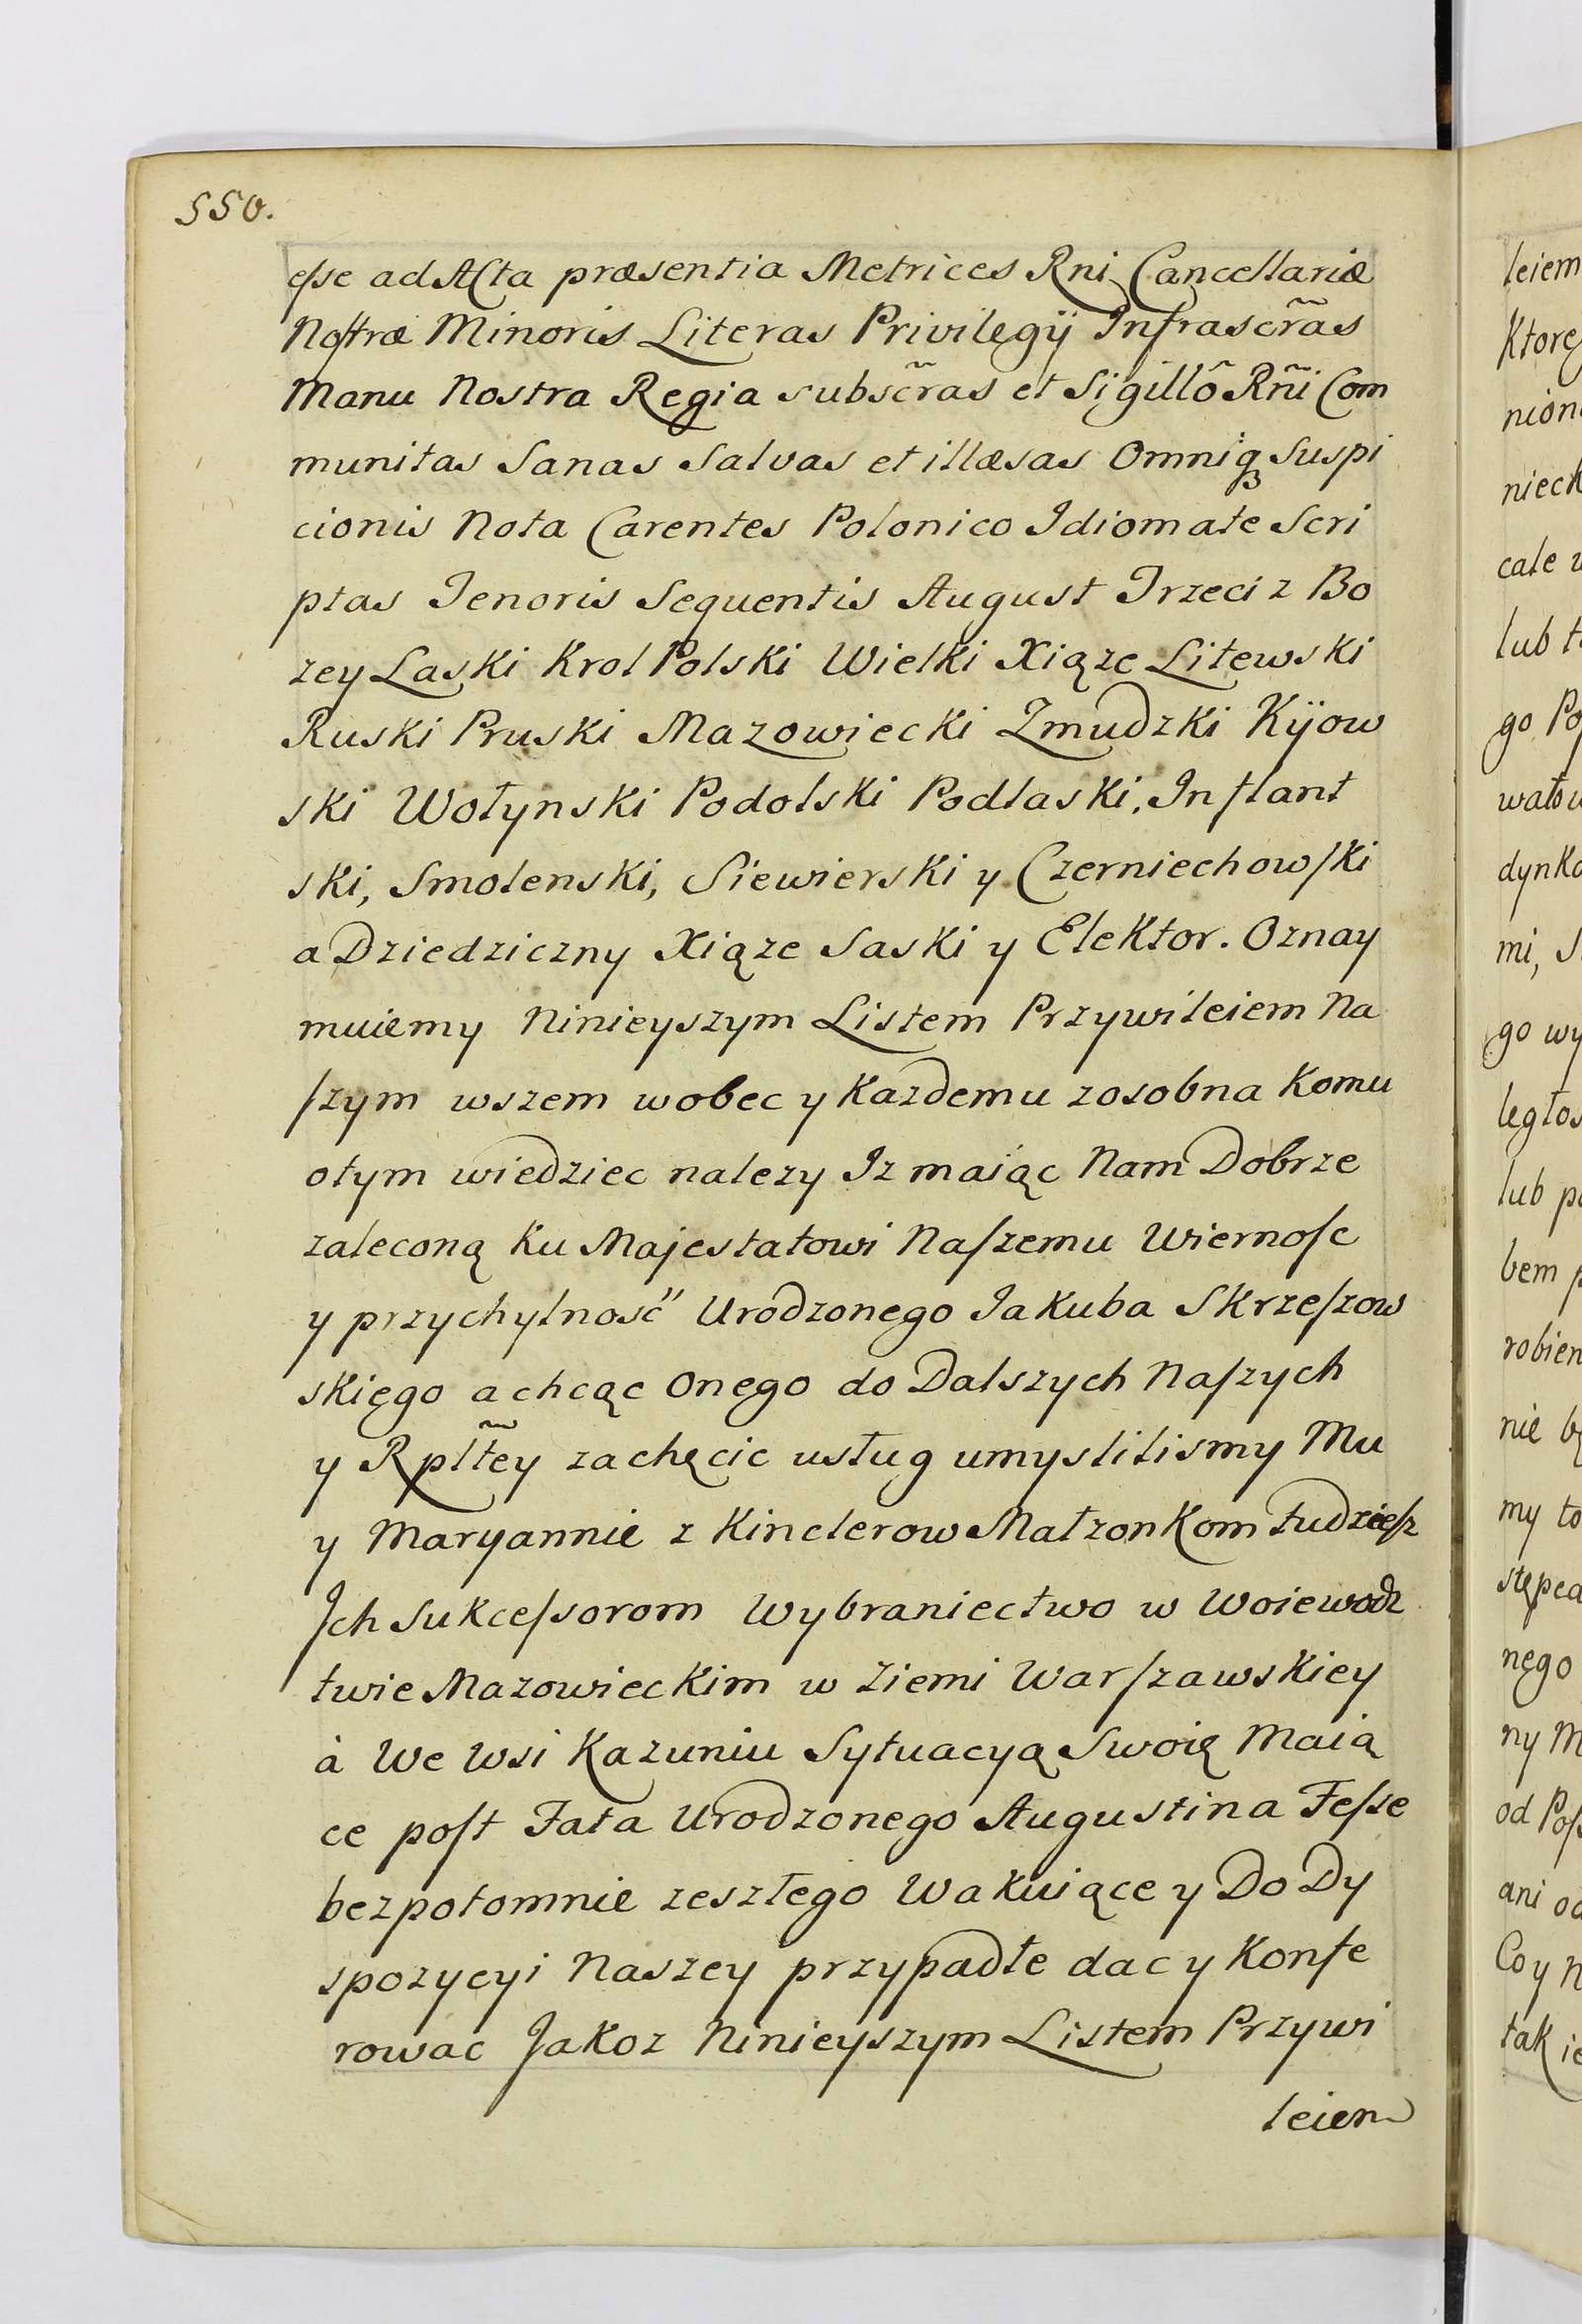 550.
eſse ad Acta præsentia Metrices Rni Cancellariæ
Noſtræ Minoris Literas Privilegÿ Infrascr̃as
Manu Nostra Regia subscr̃as et Sigillô Rñi Com
munitas Sanas Salvas et illæsas Omniq́ꝫ Suspi
cionis Nota Carentes Polonico Idiomate Scri
ptas Tenoris Sequentis August Trzeci z Bo
zey Laski Krol Polski Wielki Xiąze Litewski
Ruski Pruski Mazowiecki Zmudzki Kÿow
ski Wołynski Podolski Podlaski, Inflant
ski, Smolenski, Siewierski y Czerniechowſki
a Dziedziczny Xiąze Saski y Elektor. Oznay
muiemy Ninieyszym Listem Przywileiem Na
ſzym wszem wobec y Kazdemu zosobna Komu
otym wiedziec nalezy Iz maiąc Nam Dobrze
zaleconą Ku Majestatowi Naſzemu Wiernoſc
y przychylność Urodzonego Jakuba Skrzeſzow
skięgo a chcąc Onego do Dalszych Naſzych
y Rplt̃ey zachęcic usług umyslilismy Mu
y Maryannie z Kinclerow Małzonkom tudzieſz
Ich Sukceſsorom Wybraniectwo w Woiewodz
twie Mazowieckim w Ziemi Warſzawskiey
à We Wsi Kazuniu Sytuacyą Swoię Maią
ce poſt Fata Urodzonego Augustina Feſse
bezpotomnie zeszłego Wakuiące y Do Dy
spozycyi Naszey przypadłe dac y Konfe
rowac Jakoz Ninieyszym Listem Przywi
leiem
leiem
Ktorę
nion
nieck
cale
lub t
go Po
wało
dynko
mi, S
go wy
ległos
lub p
bem p
robien
nie b
my to
stępca
nęgo
ny M
od Poſ
ani od
Coy N
tak ie